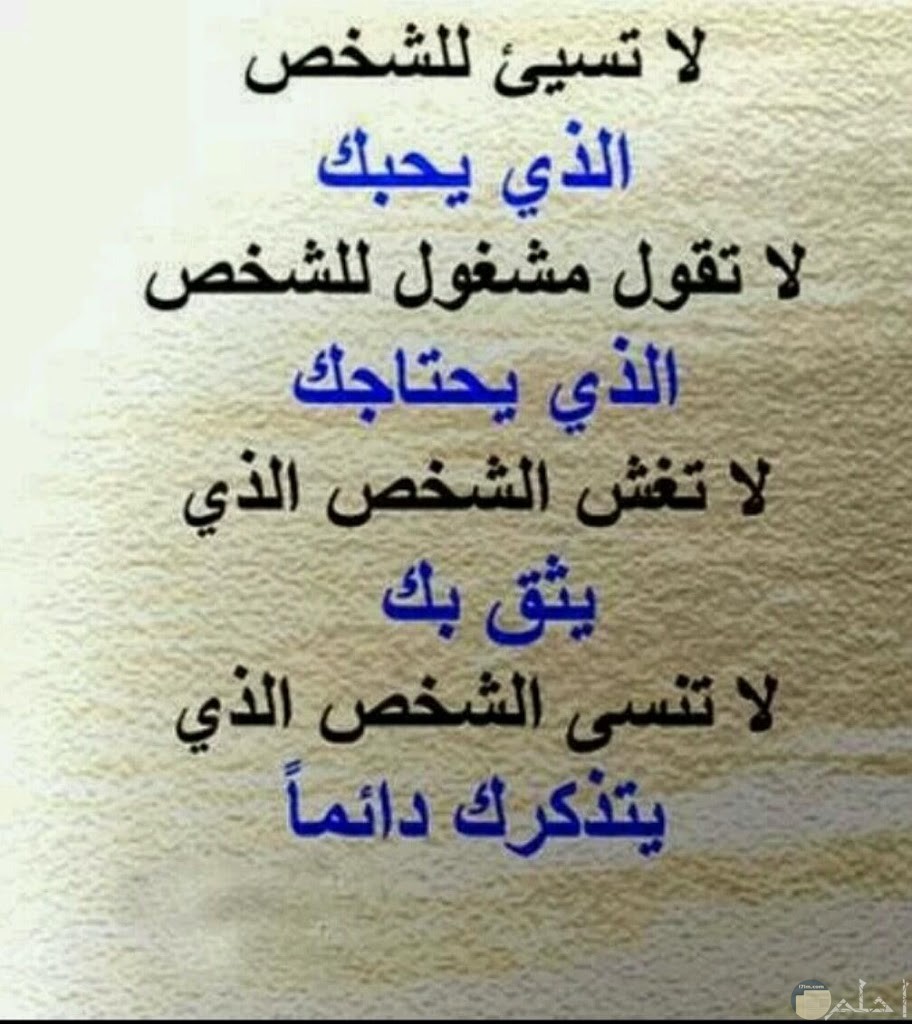 لا تسيئ للشخص
الذي يحبك
لا تقول مشغول للشخص
الذي يحتاجك
لا تغش الشخص الذي
يثق بك
لا تنسى الشخص الذي
يتذكرك دائماً
احلم